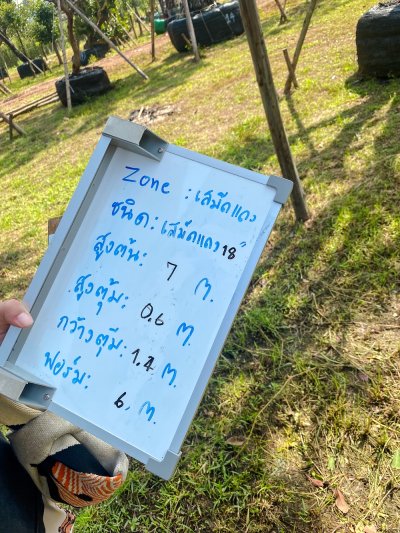 Zone : เสม็ดแดง
ชนิด : เสม็ดแดง 18"
สูงต้น : 7 ม.
สูงตุ้ม : 0.6 ม.
กว้างตุ้ม : 1.4 ม.
ฟอร์ม : 6 ม.